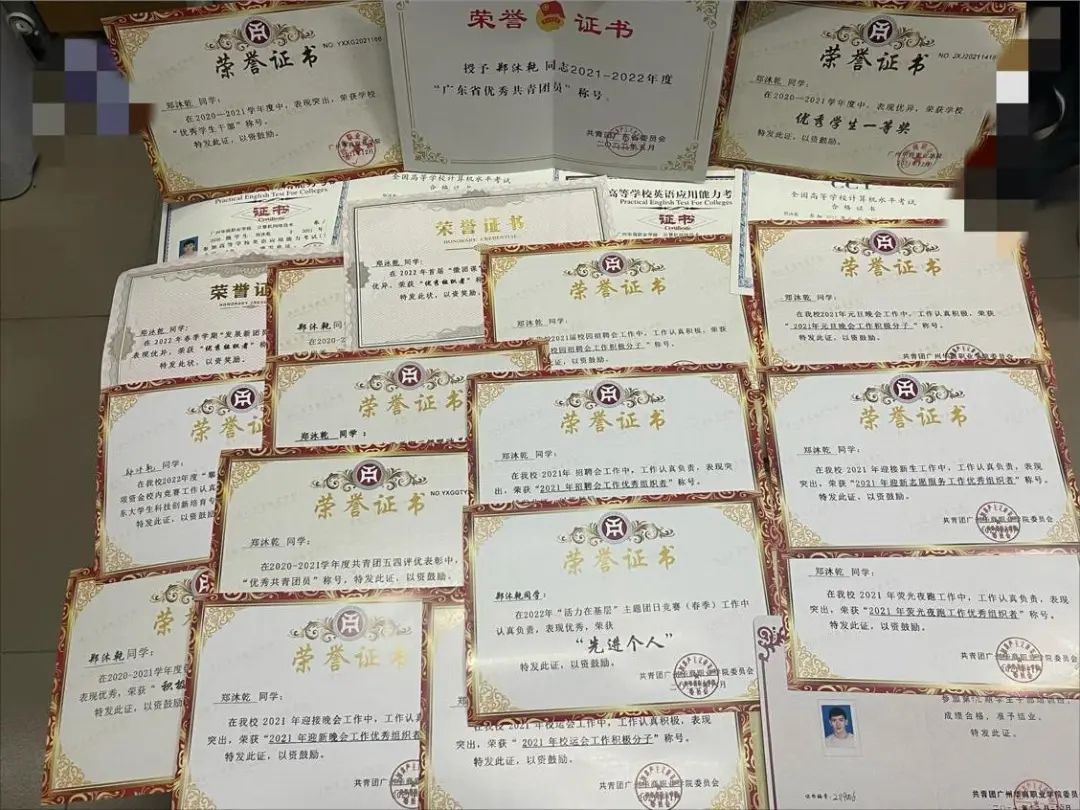 荣誉证书
NO YXXG2021166
郑沐乾 同学:
在2020—2021学年度中,表现突出,荣获学校
“优秀学生干部”称号。
特发此证,以资鼓励。
荣誉证书
授予 郑沐乾 同志2021-2022年度
“广东省优秀共青团员”称号。
共青团广东省委员会
二〇二二年五月
荣誉证书
郑沐乾 同学:
在2020—2021学年度中,表现优异,荣获学校
优秀学生一等奖
特发此证,以资鼓励。
Practical English Test For Colleges
证书
Certificate
全国高等学校计算机水平考试
合格证书
高等学校英语应用能力考
Practical English Test For Colleges
证书
Certificate
全国高等学校计算机水平考试
合格证书
荣誉证书
郑沐乾 同学:
在2022年首届“微团课
优异,荣获“优秀组织者”
特发此状,以资奖励。
荣誉证
郑沐乾 同学:
在2022年春季学期“发展新团员
表现优异,荣获“优秀组织者”
特发此状,以资奖励。
郑沐乾 同
在2020-2
荣誉证书
郑沐乾 同学:
届校园招聘会工作中,工作认真积极,荣获
校园招聘会工作积极分子”称号。
特发此证,以资鼓励。
荣誉证书
郑沐乾 同学:
在我校2021年元旦晚会工作中,工作认真积极,荣获
“2021年元旦晚会工作积极分子”称号。
特发此证,以资鼓励。
荣誉证书
郑沐乾 同学:
荣誉证
郑沐乾 同学:
在我校2022年度“攀
项资金校内竞赛工作认真
东大学生科技创新培育专
特发此证,以资鼓励
荣誉证书
郑沐乾 同学:
在我校 2021年 招聘会工作中,工作认真负责,表现
突出,荣获“2021年招聘会工作优秀组织者”称号。
荣誉证书
郑沐乾 同学:
在我校 2021 年迎接新生工作中,工作认真负责,表现突
出,荣获“2021 年迎新志愿服务工作优秀组织者”称号。
特发此证,以资鼓励。
共青团广州华商职业学院委员会
荣誉证书
NO YXGGTY
郑沐乾 同学:
在2020-2021学年度共青团五四评优表彰中,
“优秀共青团员”称号,特发此证,以资鼓励。
荣誉证书
郑沐乾同学:
在2022年“活力在基层”主题团日竞赛(春季)工作中
认真负责,表现优秀,荣获
“先进个人”
特发此证,以资鼓励。
郑沐乾 同学:
在我校 2021 年荧光夜跑工作中,工作认真负责,表现
突出,荣获“2021 年荧光夜跑工作优秀组织者”称号。
特发此证,以资鼓励。
共青团广州华商职业学院委员会
荣
郑沐乾 同学:
在2020-2021学年度
表现优秀,荣获“积极
特发此证,以资鼓励
荣誉证书
郑沐乾 同学:
在我校 2021 年迎接晚会工作中,工作认真
突出,荣获“2021 年迎新晚会工作优秀组织者
特发此证,以资鼓励。
共青团广州
在我校 2021 年校运会工作中,工作认真积极,表现
突出,荣获“ 2021 年校运会工作积极分子”称号。
特发此证,以资鼓励。
共青团广州华商职业学院委员会
成绩合格,准予结业。
特发此证。
共青团广州华商职业学院委员